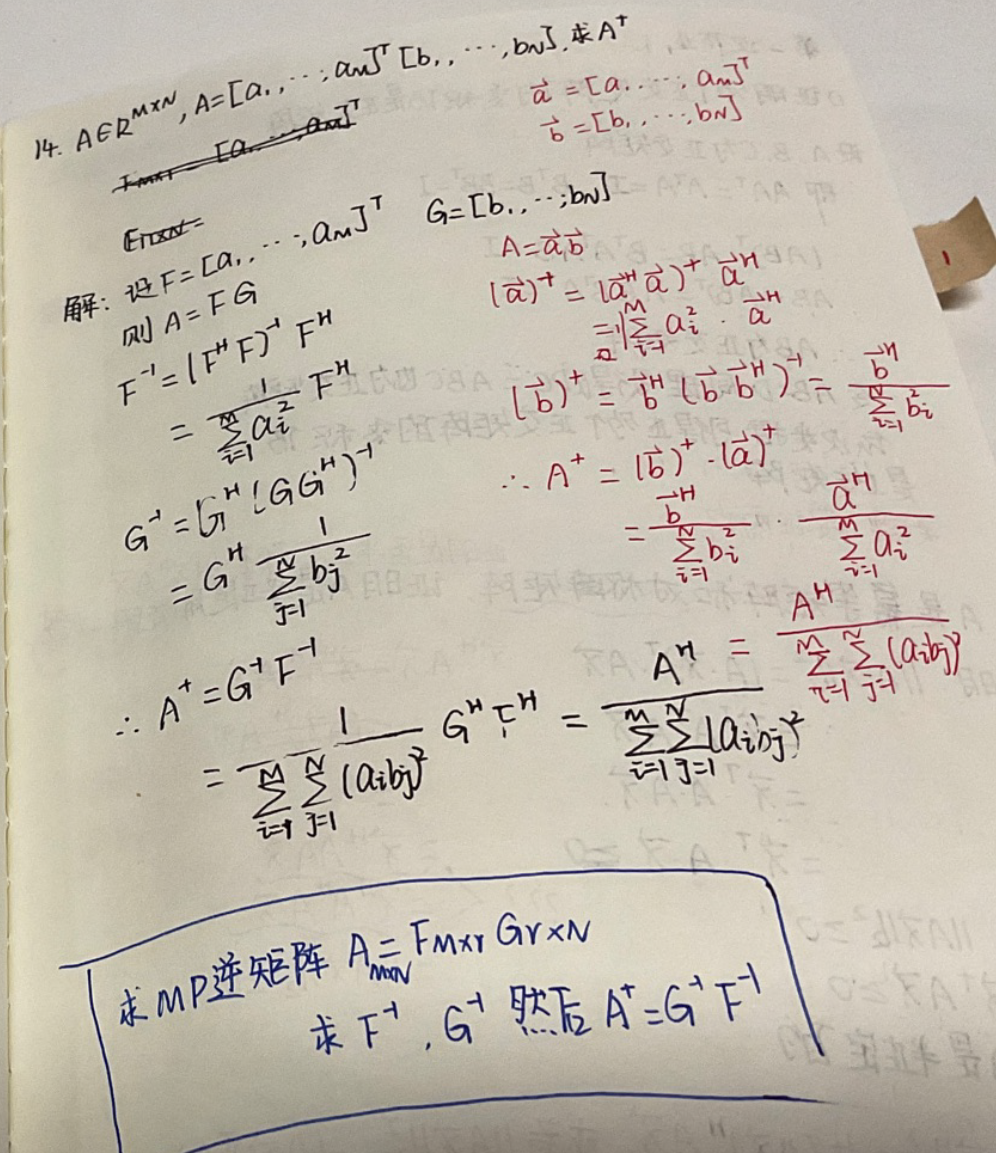 14. A∈R^{M×N}, A=[a₁,…,a_M]^T [b₁,…,b_N], 求A⁺
a⃗ = [a₁…,a_M]^T
b⃗ = [b₁,…,b_N]
解: 设F=[a₁,…,a_M]^T G=[b₁,…,b_N]
则 A=FG
F⁻¹=(F^H F)⁻¹ F^H
= 1/(∑_{i=1}^{M} a_i²) F^H
G⁻¹=G^H(GG^H)⁻¹
= G^H 1/(∑_{j=1}^{N} b_j²)
∴ A⁺=G⁻¹F⁻¹
= 1/(∑_{i=1}^{M} ∑_{j=1}^{N} (a_i b_j)²) G^H F^H = A^H/(∑_{i=1}^{M} ∑_{j=1}^{N} (a_i b_j)²)
A=a⃗b⃗
(a⃗)⁺ = (a⃗^H a⃗)⁺ a⃗^H
= 1/∑_{i=1}^{M} a_i² · a⃗^H
(b⃗)⁺ = b⃗^H (b⃗ b⃗^H)⁻¹ = b⃗^H/(∑_{i=1}^{N} b_i²)
∴ A⁺ = (b⃗)⁺·(a⃗)⁺
= b⃗^H/(∑_{i=1}^{N} b_i²) · a⃗^H/(∑_{i=1}^{M} a_i²)
= A^H/(∑_{i=1}^{M} ∑_{j=1}^{N} (a_i b_j)²)
求MP逆矩阵 A_{M×N}=F_{M×r} G_{r×N}
求 F⁻¹, G⁻¹ 然后 A⁺=G⁻¹F⁻¹